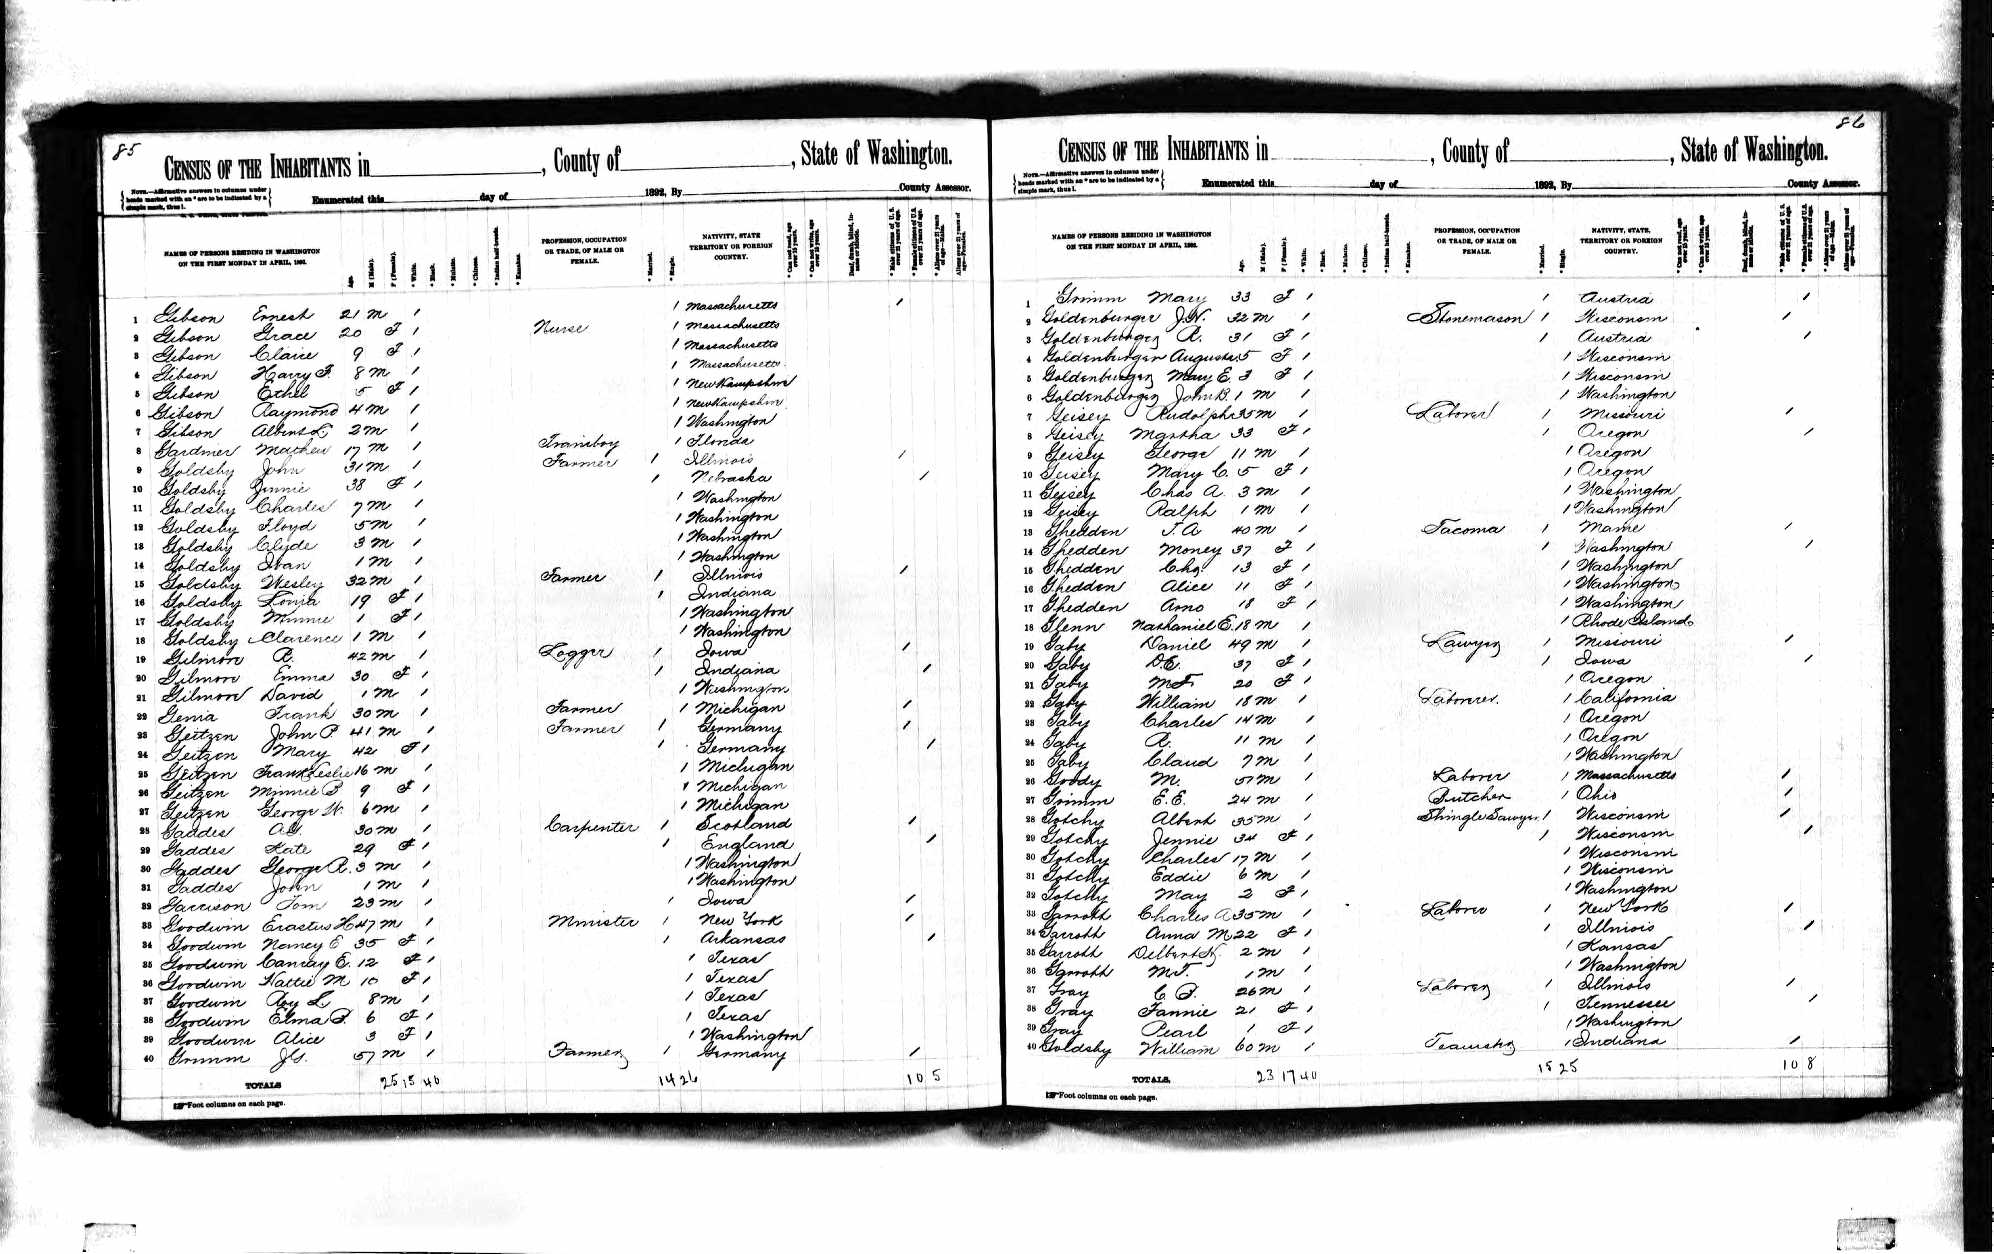 85
CENSUS OF THE INHABITANTS in , County of , State of Washington.
NOTE.—Affirmative answers in columns under heads marked with an * are to be indicated by a simple mark, thus 1.
Enumerated this day of 1892, By County Assessor.
NAMES OF PERSONS RESIDING IN WASHINGTON ON THE FIRST MONDAY IN APRIL, 1892. Age. M (Male). F (Female). * White. * Black. * Mulatto. * Chinese. * Indian half-breeds. * Kanakas. PROFESSION, OCCUPATION OR TRADE, OF MALE OR FEMALE. * Married. * Single. NATIVITY, STATE TERRITORY OR FOREIGN COUNTRY. * Can not read, age over 15 years. * Can not write, age over 15 years. Deaf, dumb, blind, insane or idiotic. * Male citizens of U. S. over 21 years of age. * Females citizens of U.S. over 21 years of age. * Aliens over 21 years of age—Males. Aliens over 21 years of age—Females.
1 Gibson Ernest 21 M 1 1 Massachusetts 1
2 Gibson Grace 20 F 1 Nurse 1 Massachusetts
3 Gibson Claire 9 F 1 1 Massachusetts
4 Gibson Harry F. 8 M 1 1 Massachusetts
5 Gibson Ethel 5 F 1 1 New Hampshire
6 Gibson Raymond 4 M 1 1 New Hampshire
7 Gibson Albert L. 2 M 1 1 Washington
8 Gardner Mathew 17 M 1 Trainboy 1 Florida
9 Goldsby John 31 M 1 Farmer 1 Illinois 1
10 Goldsby Jennie 38 F 1 1 Nebraska 1
11 Goldsby Charles 7 M 1 1 Washington
12 Goldsby Floyd 5 M 1 1 Washington
13 Goldsby Clyde 3 M 1 1 Washington
14 Goldsby Ivan 1 M 1 1 Washington
15 Goldsby Wesley 32 M 1 Farmer 1 Illinois 1
16 Goldsby 19 F 1 1 Indiana
17 Goldsby Minnie 1 F 1 1 Washington
18 Goldsby Clarence 1 M 1 1 Washington
19 Gilmore R. 42 M 1 Logger 1 Iowa 1
20 Gilmore Emma 30 F 1 1 Indiana 1
21 Gilmore David 1 M 1 1 Washington
22 Genia Frank 30 M 1 Farmer 1 Michigan 1
23 Geitzen John P 41 M 1 Farmer 1 Germany 1
24 Geitzen Mary 42 F 1 1 Germany 1
25 Geitzen Frank Leslie 16 M 1 1 Michigan
26 Geitzen Minnie B 9 F 1 1 Michigan
27 Geitzen George W. 6 M 1 1 Michigan
28 Gaddes A.G. 30 M 1 Carpenter 1 Scotland 1
29 Gaddes Kate 29 F 1 1 England 1
30 Gaddes George R. 3 M 1 1 Washington
31 Gaddes John 1 M 1 1 Washington
32 Garrison Tom 23 M 1 1 Iowa 1
33 Goodwin Erastus H 47 M 1 Minister 1 New York 1
34 Goodwin Nancy E 35 F 1 1 Arkansas 1
35 Goodwin E. 12 F 1 1 Texas
36 Goodwin Hattie M 10 F 1 1 Texas
37 Goodwin Roy L 8 M 1 1 Texas
38 Goodwin Elma B. 6 F 1 1 Texas
39 Goodwin Alice 3 F 1 1 Washington
40 Grimm J.G. 57 M 1 Farmer 1 Germany 1
TOTALS 25 15 40 14 26 10 5
Foot columns on each page.
86
CENSUS OF THE INHABITANTS in , County of , State of Washington.
NOTE.—Affirmative answers in columns under heads marked with an * are to be indicated by a simple mark, thus 1.
Enumerated this day of 1892, By County Assessor.
NAMES OF PERSONS RESIDING IN WASHINGTON ON THE FIRST MONDAY IN APRIL, 1892. Age. M (Male). F (Female). * White. * Black. * Mulatto. * Chinese. * Indian half-breeds. * Kanakas. PROFESSION, OCCUPATION OR TRADE, OF MALE OR FEMALE. * Married. * Single. NATIVITY, STATE TERRITORY OR FOREIGN COUNTRY. * Can not read, age over 15 years. * Can not write, age over 15 years. Deaf, dumb, blind, insane or idiotic. * Male citizens of U. S. over 21 years of age. * Females citizens of U.S. over 21 years of age. * Aliens over 21 years of age—Males. Aliens over 21 years of age—Females.
1 Grimm Mary 33 F 1 1 Austria 1
2 Goldenburger J.N. 32 M 1 Stonemason 1 Wisconsin 1
3 Goldenburger R. 31 F 1 1 Austria 1
4 Goldenburger Augusta 5 F 1 1 Wisconsin
5 Goldenburger Mary E. 3 F 1 1 Wisconsin
6 Goldenburger John B. 1 M 1 1 Washington
7 Geisey Rudolph 35 M 1 Laborer 1 Missouri 1
8 Geisey Martha 33 F 1 1 Oregon 1
9 Geisey George 11 M 1 1 Oregon
10 Geisey Mary C. 5 F 1 1 Oregon
11 Geisey Chas A. 3 M 1 1 Washington
12 Geisey Ralph 1 M 1 1 Washington
13 Ghedden T. A 40 M 1 Tacoma 1 Maine 1
14 Ghedden Money 37 F 1 1 Washington 1
15 Ghedden 13 F 1 1 Washington
16 Ghedden Alice 11 F 1 1 Washington
17 Ghedden Arno 18 F 1 1 Washington
18 Glenn Nathaniel E. 18 M 1 1 Rhode Island
19 Gaby Daniel 49 M 1 Lawyer 1 Missouri 1
20 Gaby D.E. 37 F 1 1 Iowa 1
21 Gaby M.F. 20 F 1 1 Oregon
22 Gaby William 18 M 1 Laborer 1 California
23 Gaby Charles 14 M 1 1 Oregon
24 Gaby R. 11 M 1 1 Oregon
25 Gaby Claud 7 M 1 1 Washington
26 Goody M. 57 M 1 Laborer 1 Massachusetts 1
27 Grimm E.E. 24 M 1 Butcher 1 Ohio 1
28 Gotchy Albert 35 M 1 Shingle Sawyer 1 Wisconsin 1
29 Gotchy Jennie 34 F 1 1 Wisconsin 1
30 Gotchy Charles 17 M 1 1 Wisconsin
31 Gotchy Eddie 6 M 1 1 Wisconsin
32 Gotchy May 2 F 1 1 Washington
33 Garroth Charles A 35 M 1 Laborer 1 New York 1
34 Garroth Anna M 22 F 1 1 Illinois 1
35 Garroth Delbert N. 2 M 1 1 Kansas
36 Garroth M.T. 1 M 1 1 Washington
37 Gray C B. 26 M 1 Laborer 1 Illinois 1
38 Gray Fannie 21 F 1 1 Tennessee 1
39 Gray Pearl 1 F 1 1 Washington
40 Goldsby William 60 M 1 Teamster 1 Indiana 1
TOTALS. 23 17 40 15 25 10 8
Foot columns on each page.